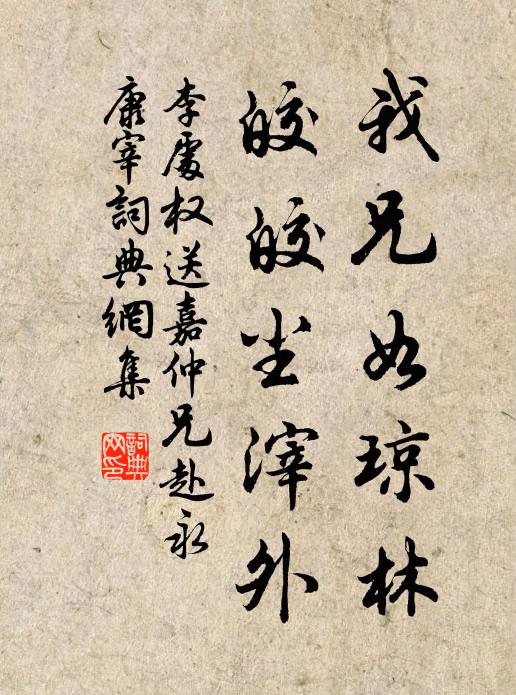 我兄如琼林
皎皎尘滓外
李處权送嘉仲兄赴永
康宰詞典網集
詞典
网印